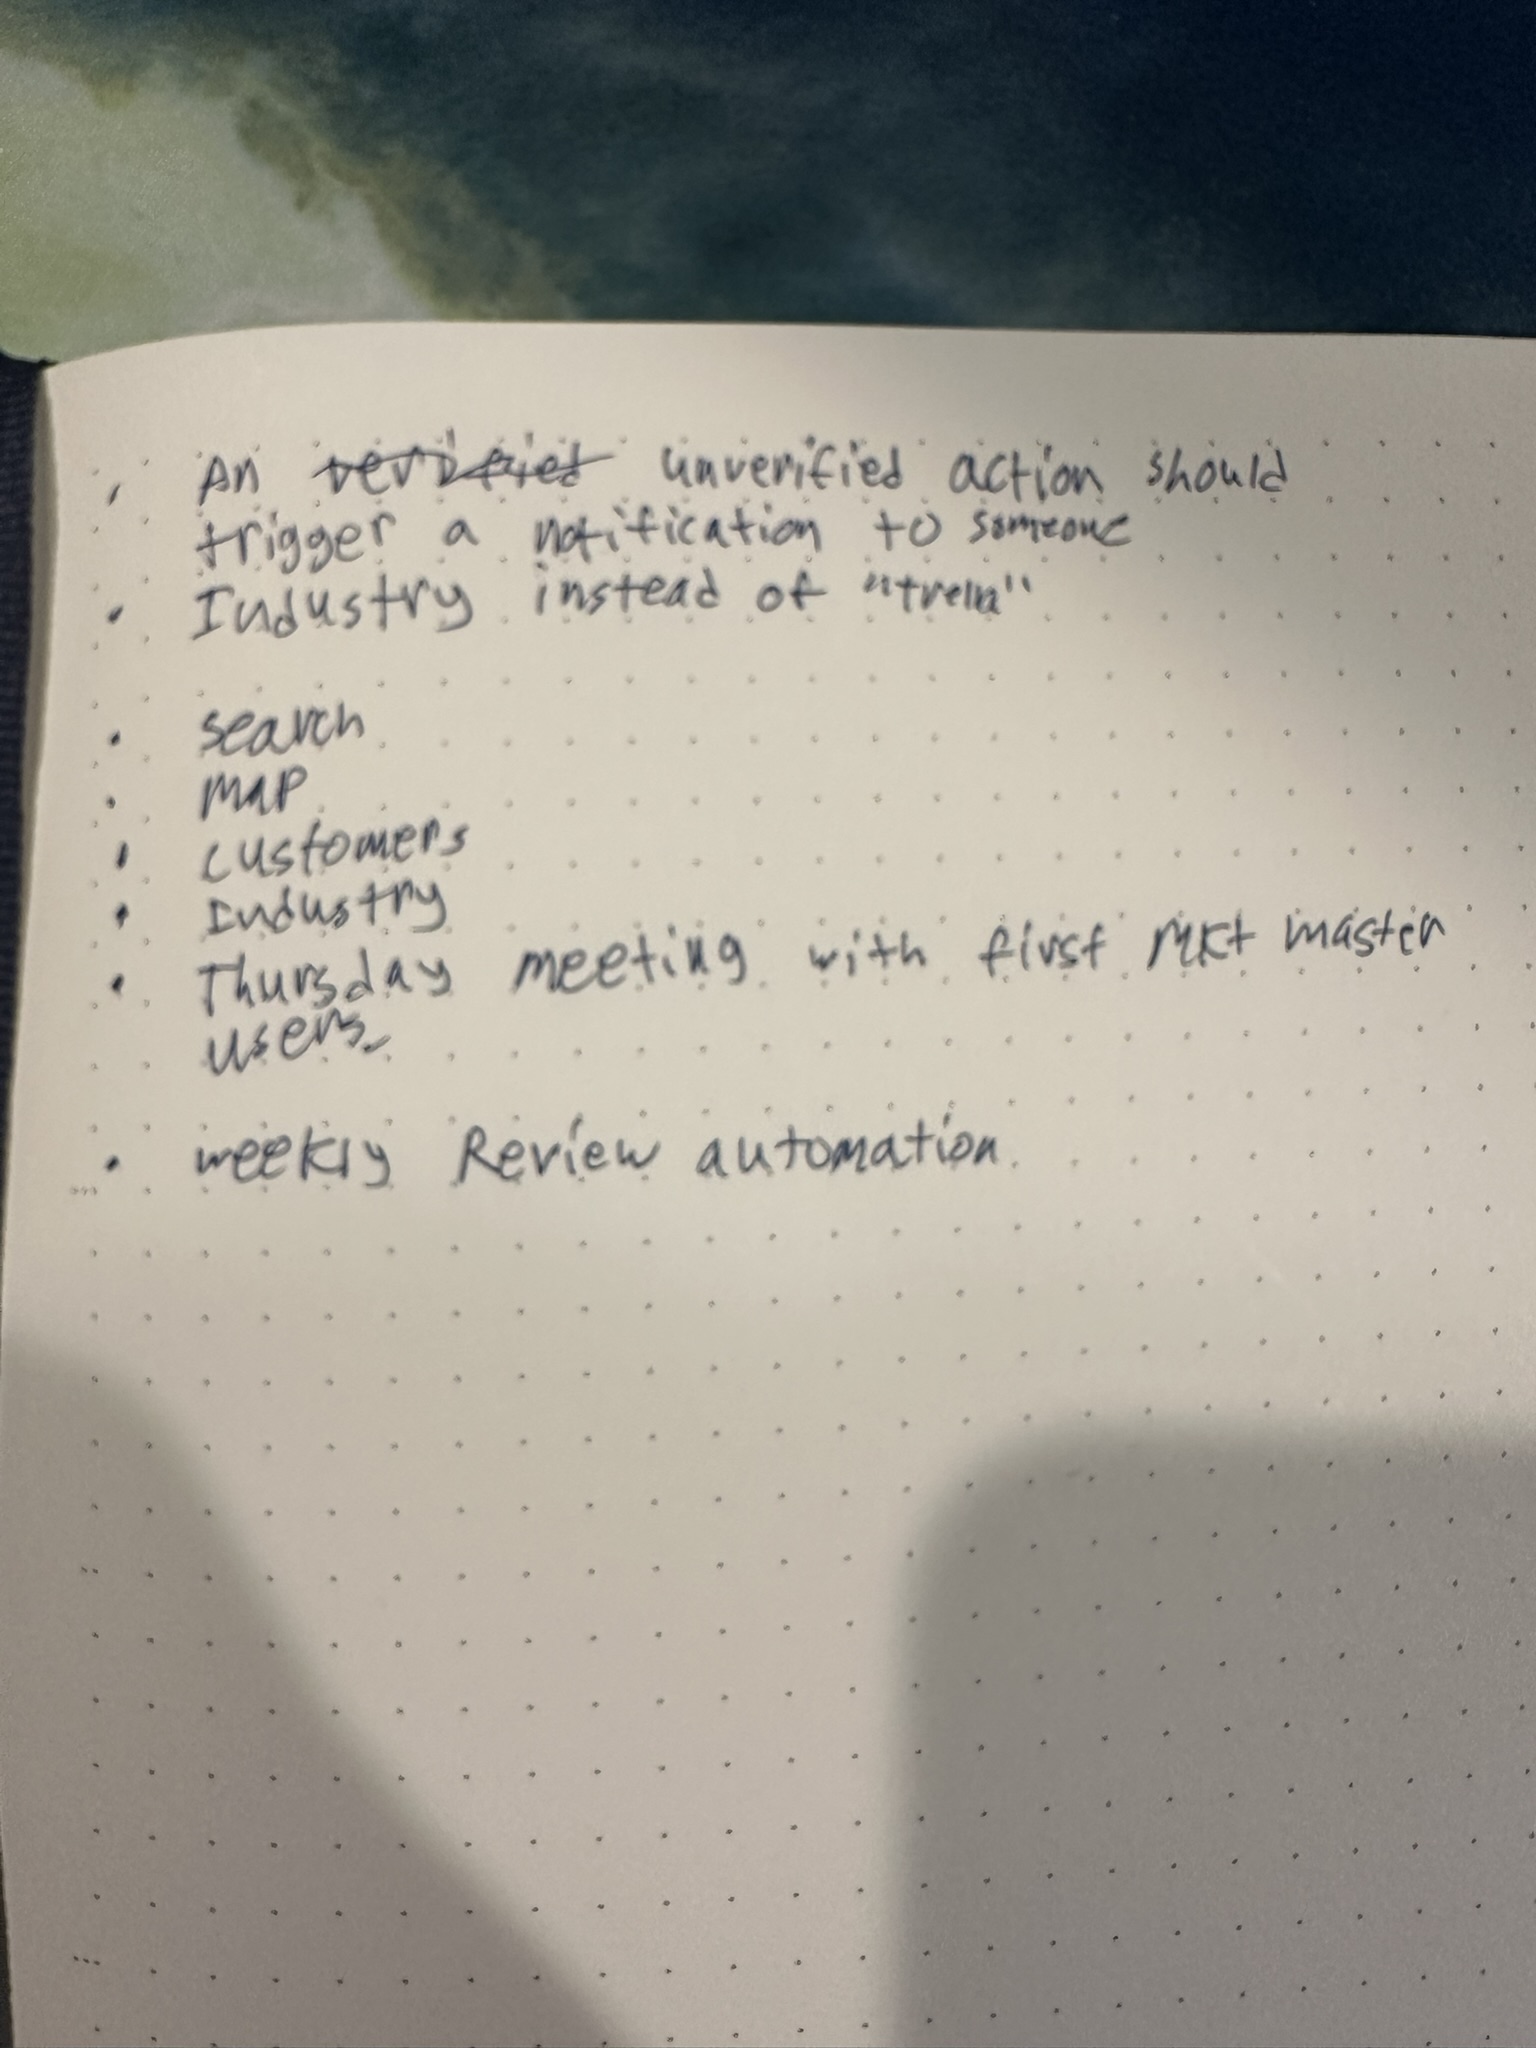 • An verified unverified action should
trigger a notification to someone
• Industry instead of
• search
• map
• customers
• Industry
• Thursday meeting with first mkt master
users
• weekly Review automation